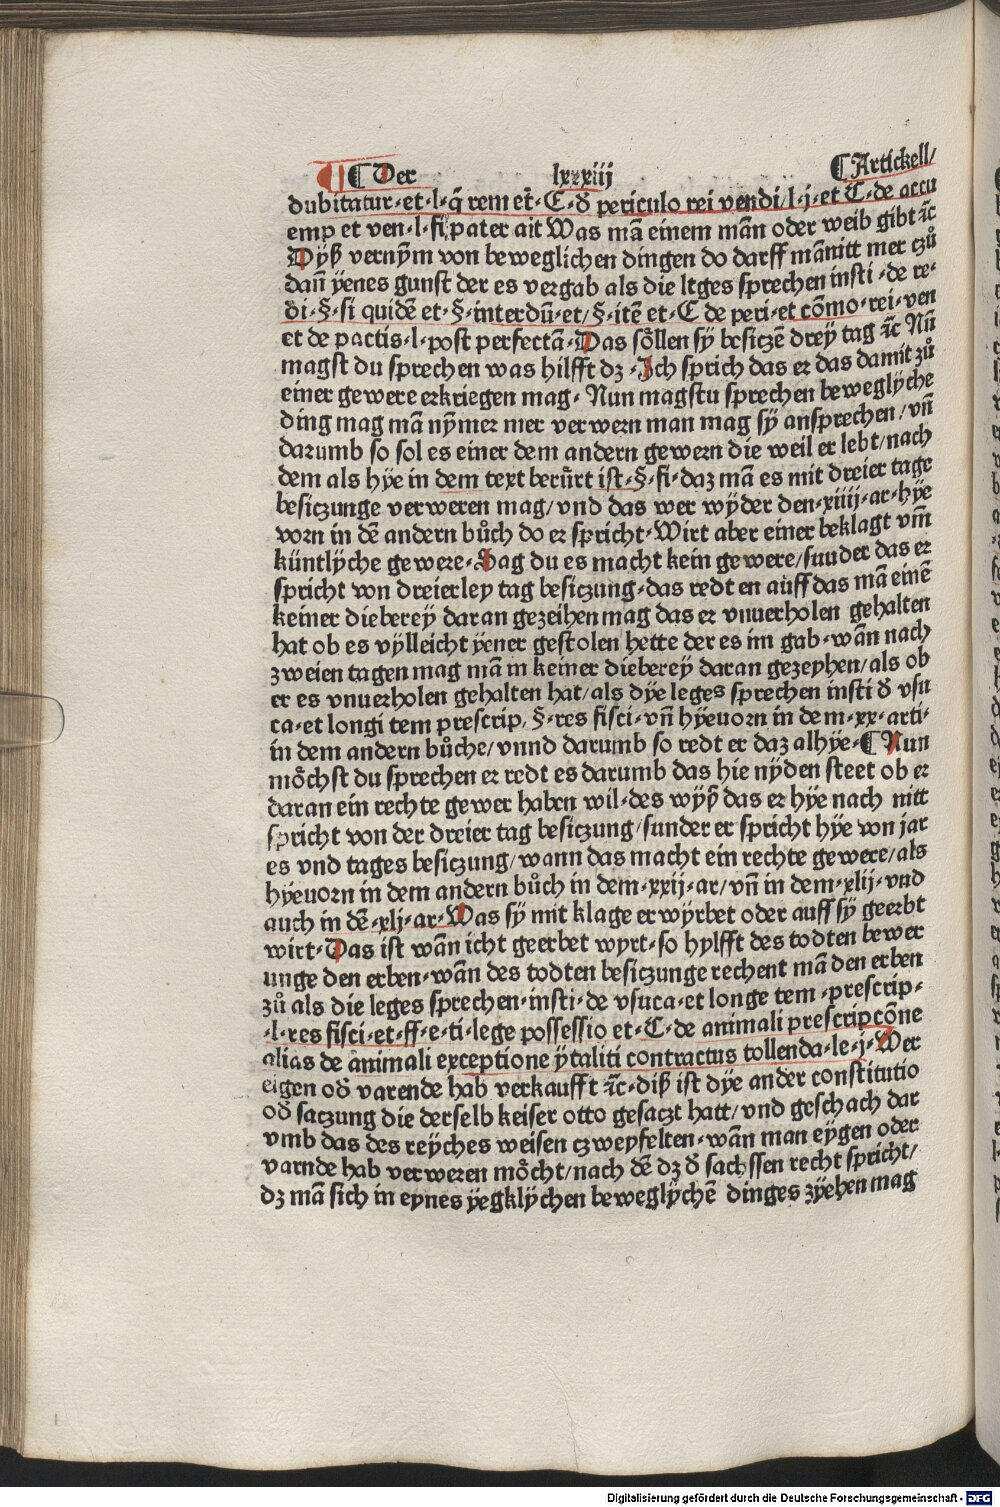 ¶ ⸿ Der lxxxiij ⸿ Artickell/
dubitatur·et·l·q̄ rem et̄·C·ð periculo rei vendi/l·j·et C·de accu
emp et ven·l·fi pater ait Was mā einem mān oder weib gibt ⁊c̄
Dÿß vernȳm von beweglichen dingen do darff mānitt mer czů
dañ ÿenes gunst der es vergab als die leges sprechen insti·de re·
di·§·si quidē et·§·interdū·et/§·itē et·C de peri·et cōmo·rei·ven
et de pactis·l·post perfectā·Das söllen sÿ besiczē dreÿ tag ⁊c̄ Nū
magst du sprechen was hilfft dz·Ich sprich das er das damit zů
einer gewere erkriegen mag·Nun magstu sprechen beweglÿche
ding mag mā nȳmer mer verwern man mag sÿ ansprechen/vñ
darumb so sol es einer dem andern gewern die weil er lebt/nach
dem als hÿe in dem text berůrt ist·§·fi·daz mā es mit dreier tage
besiczunge verweren mag/vnd das wer wÿder den·xiiij·ar·hÿe
vorn in dē andern bůch do er spricht·Wirt aber einer beklagt vm̄
küntlÿche gewere·Sag du es macht kein gewere/sunder das er
spricht von dreierley tag besiczung·das redt en auff das mā einē
keiner dieberey daran gezeihen mag das er vnuerholen gehalten
hat ob es vÿlleicht ÿener gestolen hette der es im gab·wān nach
zweien tagen mag mā in keiner dieberey daran gezeyhen/als ob
er es vnuerholen gehalten hat/als dÿe leges sprechen insti ð vsu
ca·et longi tem prescrip·§·res fisci·vñ hÿeuorn in dem·xx·arti·
in dem andern bůche/vnnd darumb so redt er daz alhÿe·⸿Nun
möchst du sprechen er redt es darumb das hie nÿden steet ob er
daran ein rechte gewer haben wil·des wÿß das er hÿe nach nitt
spricht von der dreier tag besiczung/sunder er spricht hÿe von jar
es vnd tages besiczung/wann das macht ein rechte gewere/als
hÿeuorn in dem andern bůch in dem·xxij·ar/vñ in dem·xlij·vnd
auch in dē·xlj·ar·Was sÿ mit klage erwÿrbet oder auff sÿ geerbt
wirt·Das ist wān icht geerbet wyrt·so hylfft des todten bewer
unge den erben·wān des todten besiczunge rechent mā den erben
zů als die leges sprechen·insti·de vsuca·et longe tem·prescrip·
·l·res fisci·et·ff·e·ti·lege possessio et·C·de animali prescripcōne
alias de animali exceptione ÿtaliti contractus tollenda·le·j·Wer
eigen oð varende hab verkaufft ⁊c̄·diß ist dÿe ander constitutio
oð saczung die derselb keiser otto gesaczt hatt/vnd geschach dar
vmb das des reÿches weisen czweyfelten·wān man eÿgen oder
varnde hab verweren möcht/nach dē dz ð sachssen recht spricht/
dz mā sich in eynes ÿegklÿchen beweglÿchē dinges zÿehen mag
Digitalisierung gefördert durch die Deutsche Forschungsgemeinschaft - DFG